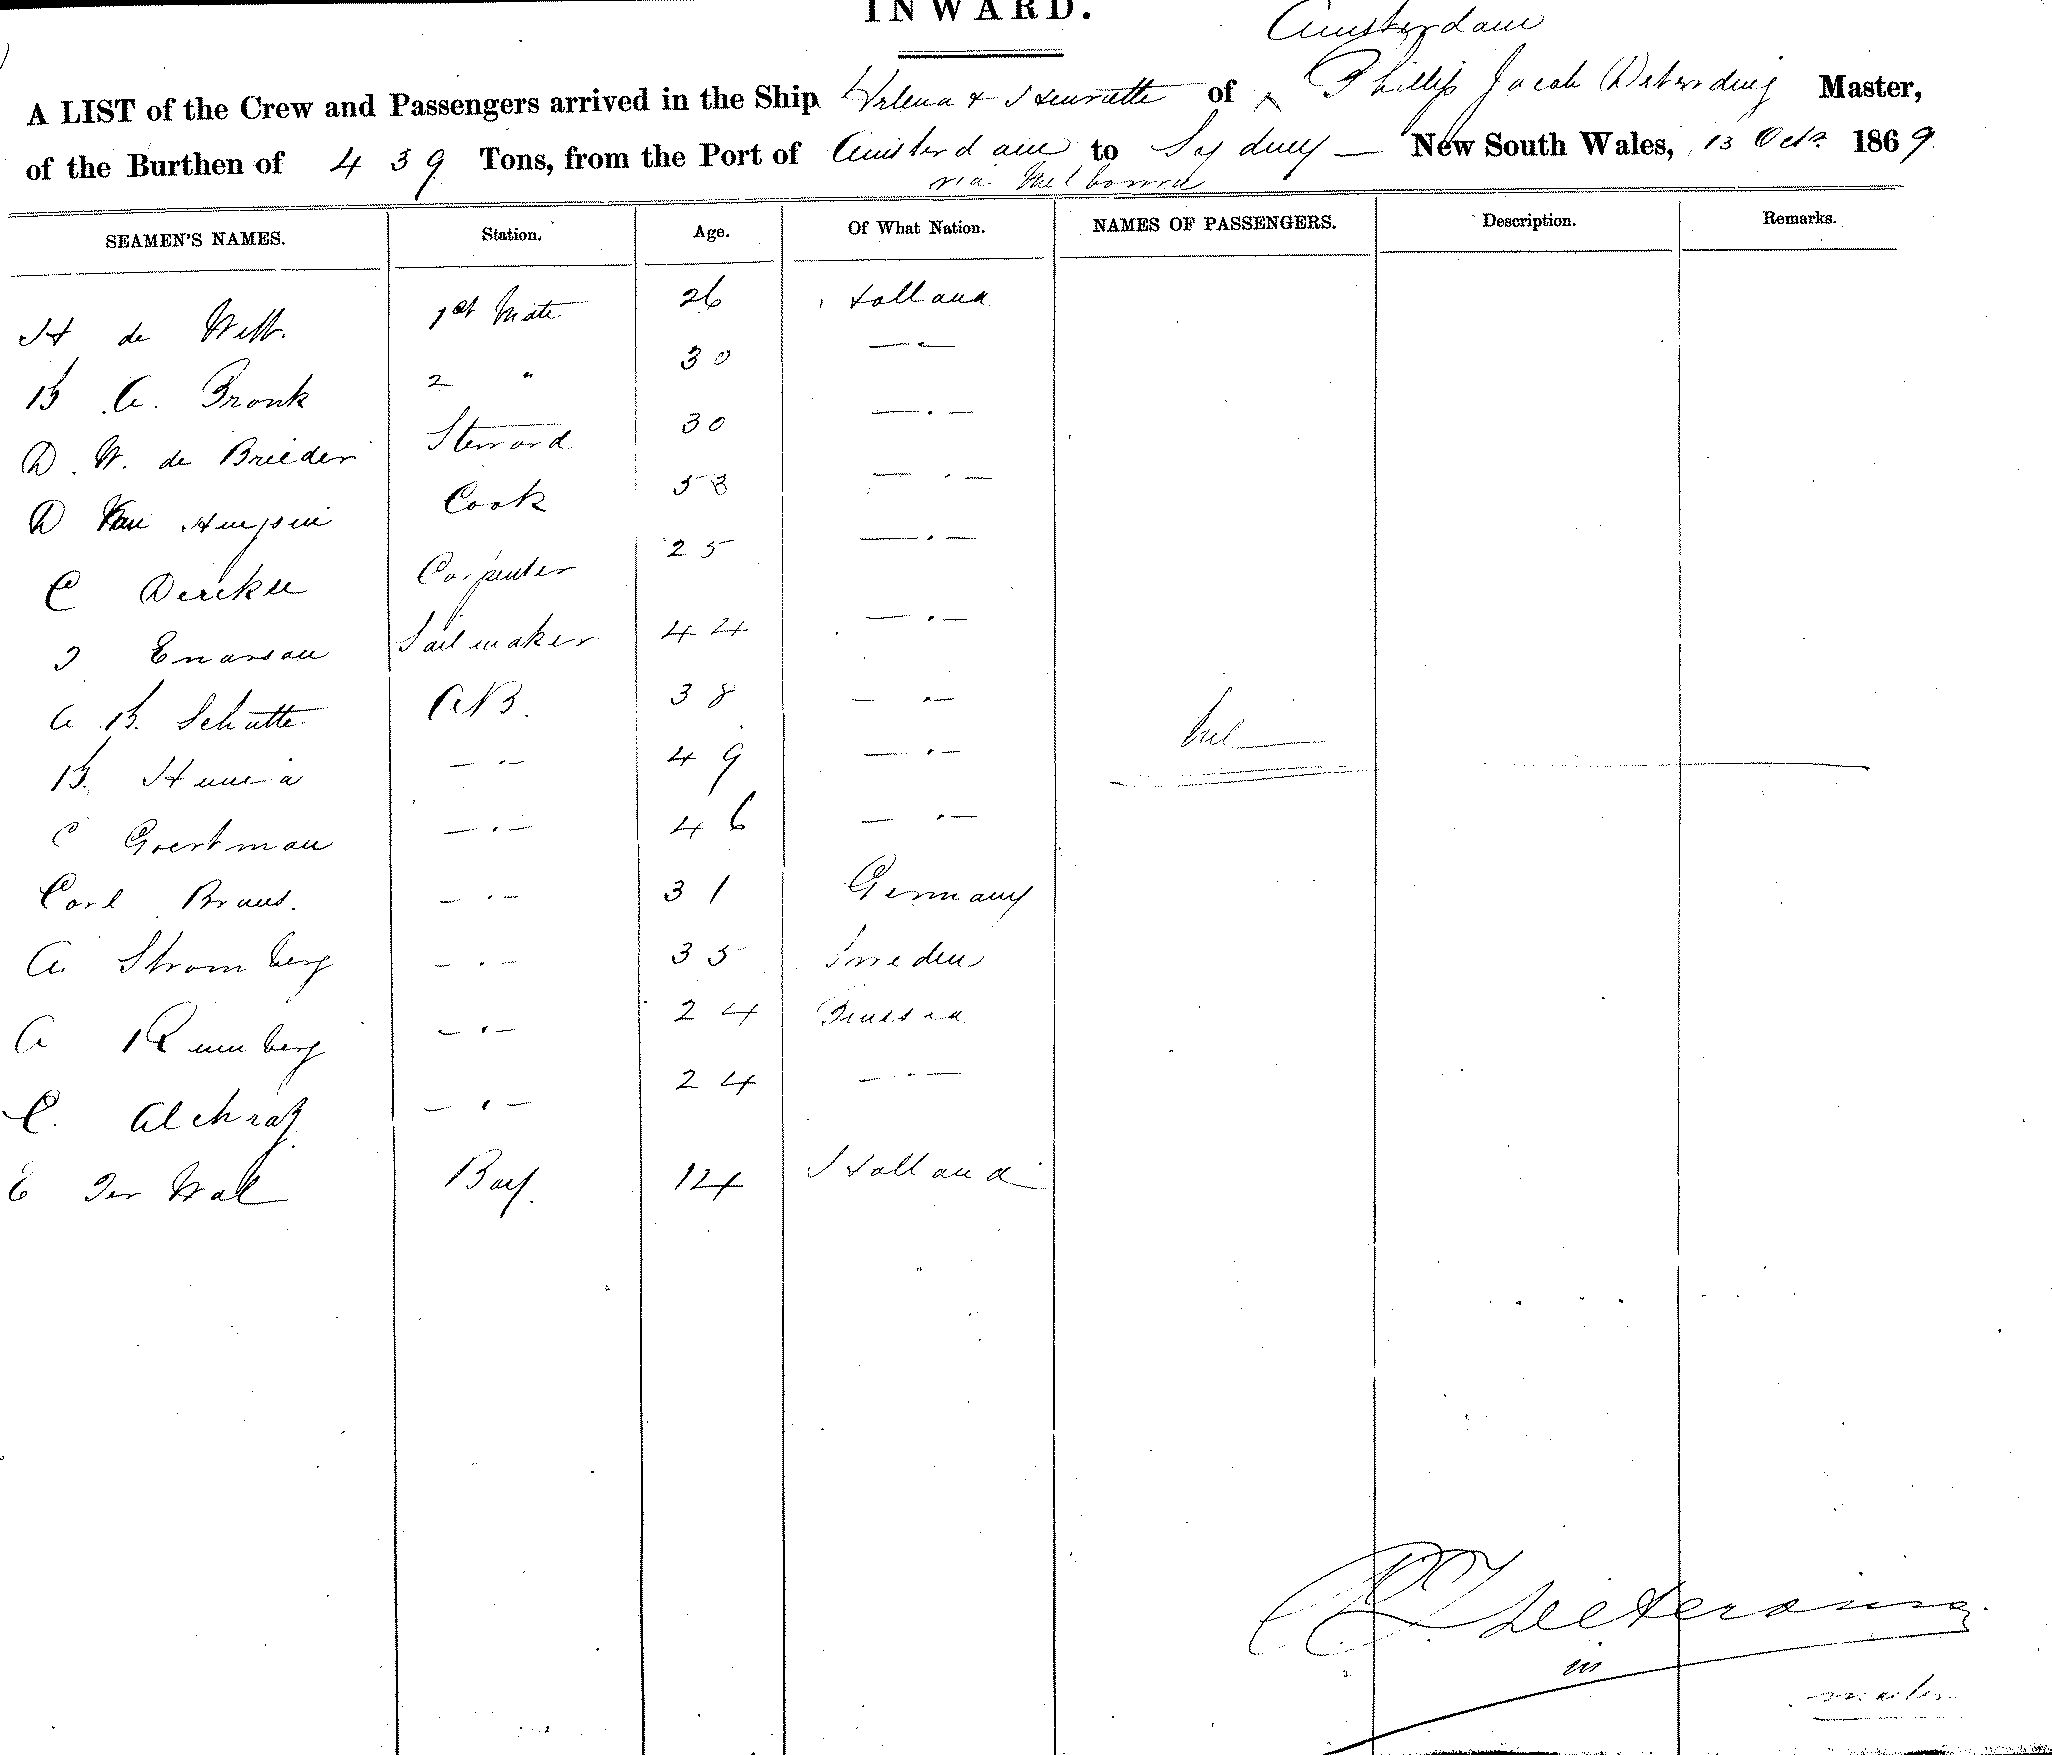 INWARD.
Amsterdam
A LIST of the Crew and Passengers arrived in the Ship Helena & Henriette of Phillip Jacob Deterding Master,
of the Burthen of 439 Tons, from the Port of Amsterdam to Sydney — New South Wales, 13 Octr 1869
via Melbourne
SEAMEN'S NAMES. Station. Age. Of What Nation. NAMES OF PASSENGERS. Description. Remarks.
H de Witt. 1st Mate 26 Holland
B A. Pronk 2 " 30 — " —
D. W. de Brieder Steward 30 — " —
D Van Cook 53 — " —
C Dirckse Carpenter 25 — " —
J Enarsan Sailmaker 44 — " —
A B. Schutte AB. 38 — " —
B. — " — 49 — " —
Nil
C Goertman — " — 46 — " —
Carl Brand. — " — 31 Germany
A. Stromberg — " — 35 Sweden
A Rumberg — " — 24 Prussia
C. — " — 24 — " —
E Ter Wal Boy. 14 Holland
Deterding
master